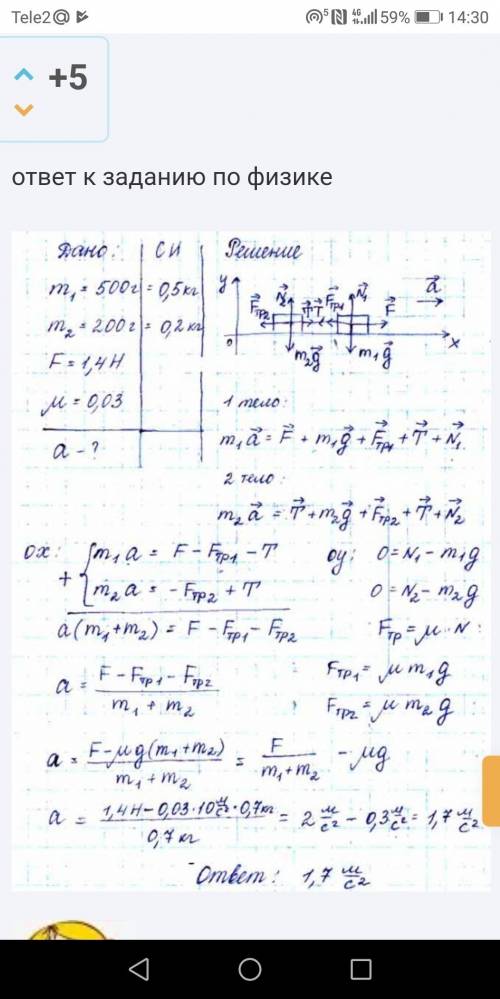 Tele2@ 5 4G 59% 14:30
+5
ответ к заданию по физике
Дано: СИ Решение
m₁ = 500г = 0,5кг
m₂ = 200г = 0,2кг
F = 1,4Н
μ = 0,03
a - ?
y N⃗₂ F⃗тр2 T⃗ T⃗ F⃗тр1 N⃗₁ F⃗ a⃗
0 m₂g⃗ m₁g⃗ x
1 тело:
m₁a⃗ = F⃗ + m₁g⃗ + F⃗тр1 + T⃗ + N⃗₁
2 тело:
m₂a⃗ = T⃗ + m₂g⃗ + F⃗тр2 + T⃗ + N⃗₂
ох: { m₁a = F - Fтр1 - T
+ { m₂a = - Fтр2 + T
a(m₁+m₂) = F - Fтр1 - Fтр2
a = (F - Fтр1 - Fтр2)/(m₁ + m₂)
оу: 0 = N₁ - m₁g
0 = N₂ - m₂g
Fтр = μ · N
Fтр1 = μ m₁g
Fтр2 = μ m₂g
a = (F - μg(m₁+m₂))/(m₁+m₂) = F/(m₁+m₂) - μg
a = (1,4Н - 0,03·10 м/с² · 0,7кг)/(0,7кг) = 2 м/с² - 0,3 м/с² = 1,7 м/с²
Ответ: 1,7 м/с²